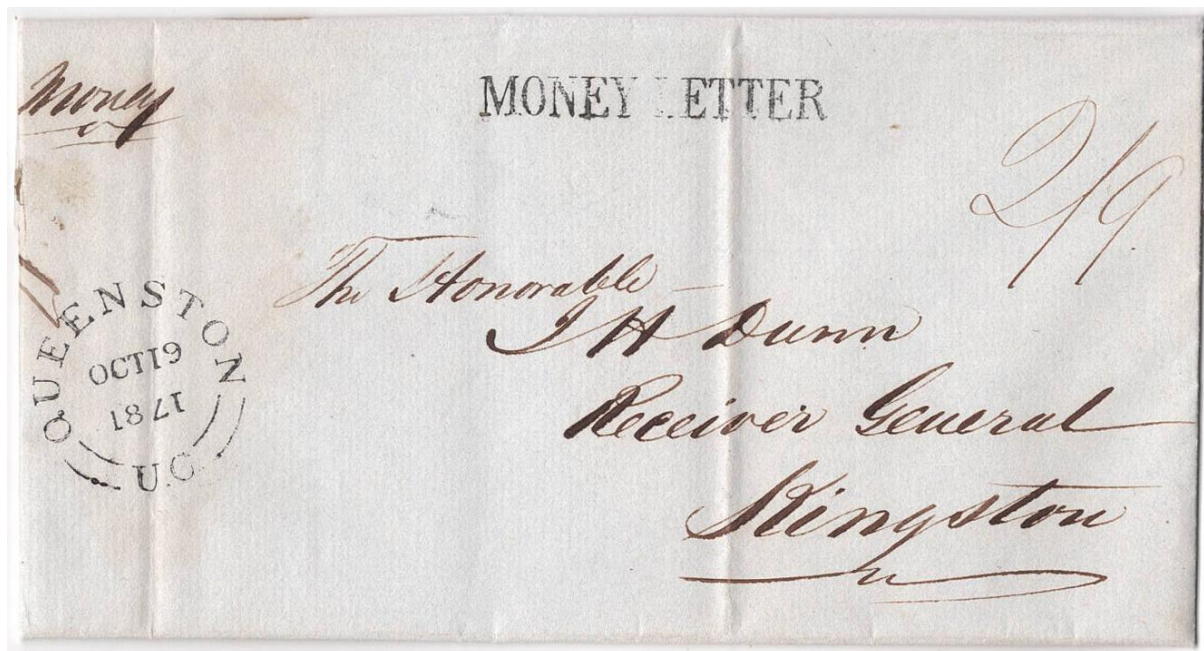 Money
MONEY LETTER
2/9
The Honorable
J H Dunn
Receiver General
Kingston
QUEENSTON
OCT 19
1871
U.C.